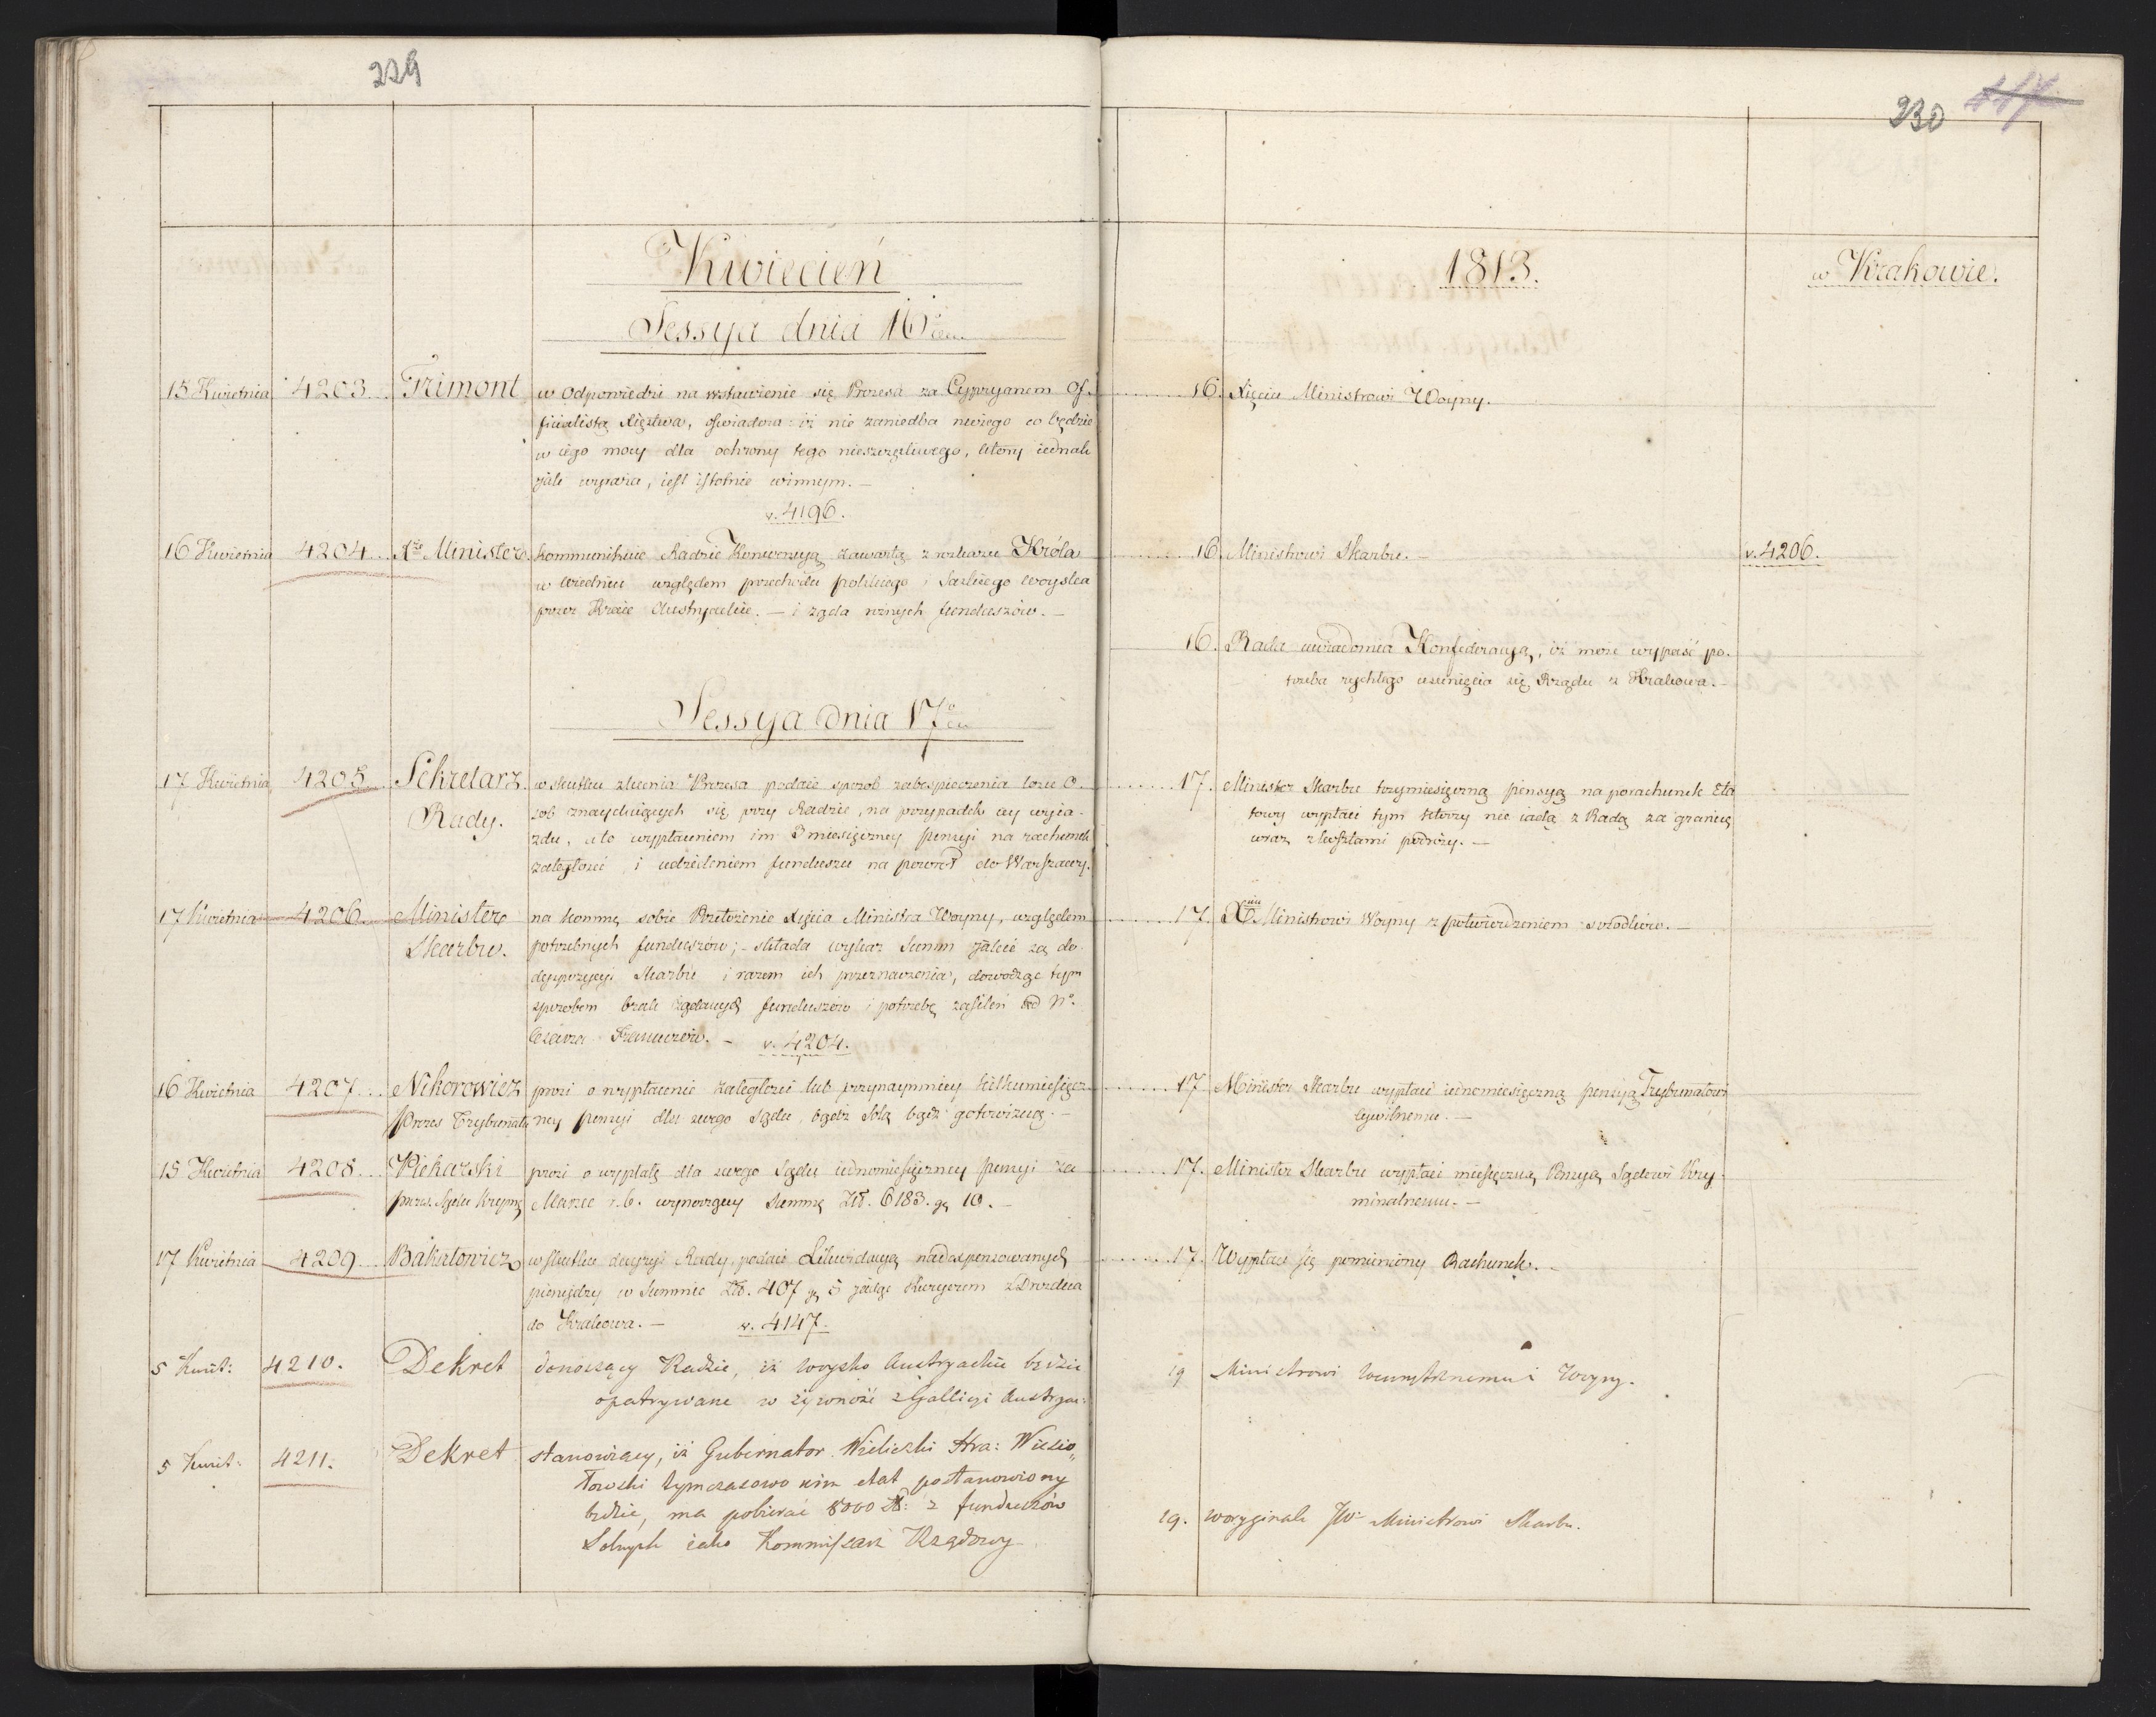 229
230
117
Kwiecień
1813.
w Krakowie.
Sessya dnia 16
15 Kwietnia 4203 Frimont w odpowiedzi na wstawienie się Prezesa za Cypryanem Of-
ficialistą Xięstwa, oświadcza: iż nie zaniedba niczego co będzie
w iego mocy dla ochrony tego nieszczęśliwego, który iednak
iak wyraża, iest istotnie winnym. —
v. 4196.
16. Xięciu Ministrowi Woyny.
16 Kwietnia 4204 Xże Minister kommunikuie Radzie Konwencyą zawartą z rozkazu Króla
w Wiedniu względem przechodu polskiego i Saskiego woyska
przez Kraie Austryackie. — i żąda rożnych funduszów. —
16. Ministrowi Skarbu. —
v. 4206.
16. Rada uwiadomia Konfederacyą, iż może wypaść po-
trzeba rychłego usunięcia się Rządu z Krakowa. —
Sessya dnia 17
17 Kwietnia 4205 Sekretarz w skutku zlecenia Prezesa podaie sposob zabespieczenia losu O-
Rady. sob znayduiących się przy Radzie, na przypadek iey wyia-
zdu, a to wypłaceniem im 3 miesięczney pensyi na rachunek
zaległości, i udzieleniem funduszu na powrót do Warszawy.
17. Minister Skarbu trzymiesięczną pensyą na porachunek Eta
towy wypłaci tym którzy nie iadą z Radą za granicę
wraz z kosztami podróży. —
17 Kwietnia 4206 Minister na kommę sobie Przełożenie Xięcia Ministra Woyny, względem
Skarbu. potrzebnych funduszów; - składa wykaz Summ iakie są do
dyspozycyi Skarbu i razem ich przeznaczenia, dowodząc tym
sposobem brak żądanych funduszów i potrzebę zasileń od N.
Cesarza Francuzów. — v. 4204.
17. Ministrowi Woyny z potwierdzeniem szrodków. —
16 Kwietnia 4207 Nikorowicz prosi o wypłacenie zaległości lub przynaymniey kilkumiesięcz-
Prezes Trybunału ney pensyi dla swego Sądu, bądź Solą bądź gotowizną. —
17 Minister Skarbu wypłaci iednomiesięczną pensyą Trybunałowi
Cywilnemu. —
15 Kwietnia 4208 Piekarski prosi o wypłatę dla swego Sądu iednomiesięczney pensyi za
Marzec r.b. wynoszący Summę Zł. 6183. gr 10. —
17. Minister Skarbu wypłaci miesięczną Pensyą Sądowi Kry-
minalnemu. —
17 Kwietnia 4209 Bakałowicz w skutku decyzyi Rady, podaie Likwidacyą nadexpensowanych
pieniędzy w Summie Zł. 407 gr 5 iadąc Kuryerem z Drezna
do Krakowa. — v. 4147.
17. Wypłaci się pomieniony Rachunek. —
5 Kwiet: 4210. Dekret donoszący Radzie, iż woysko Austryackie będzie
opatrywane w żywność z Gallicyi Austryac:
19 Ministrowi Wewnętrznemu i Woyny.
5 Kwiet: 4211. Dekret stanowiący, iż Gubernator Wieliczki Hra: Wielo„
tymczasowo nim etat postanowiony
będzie, ma pobierać 8000 zł: z funduszów
Solnych iako Kommissarz Rządowy
19. w oryginale JW Ministrowi Skarbu.